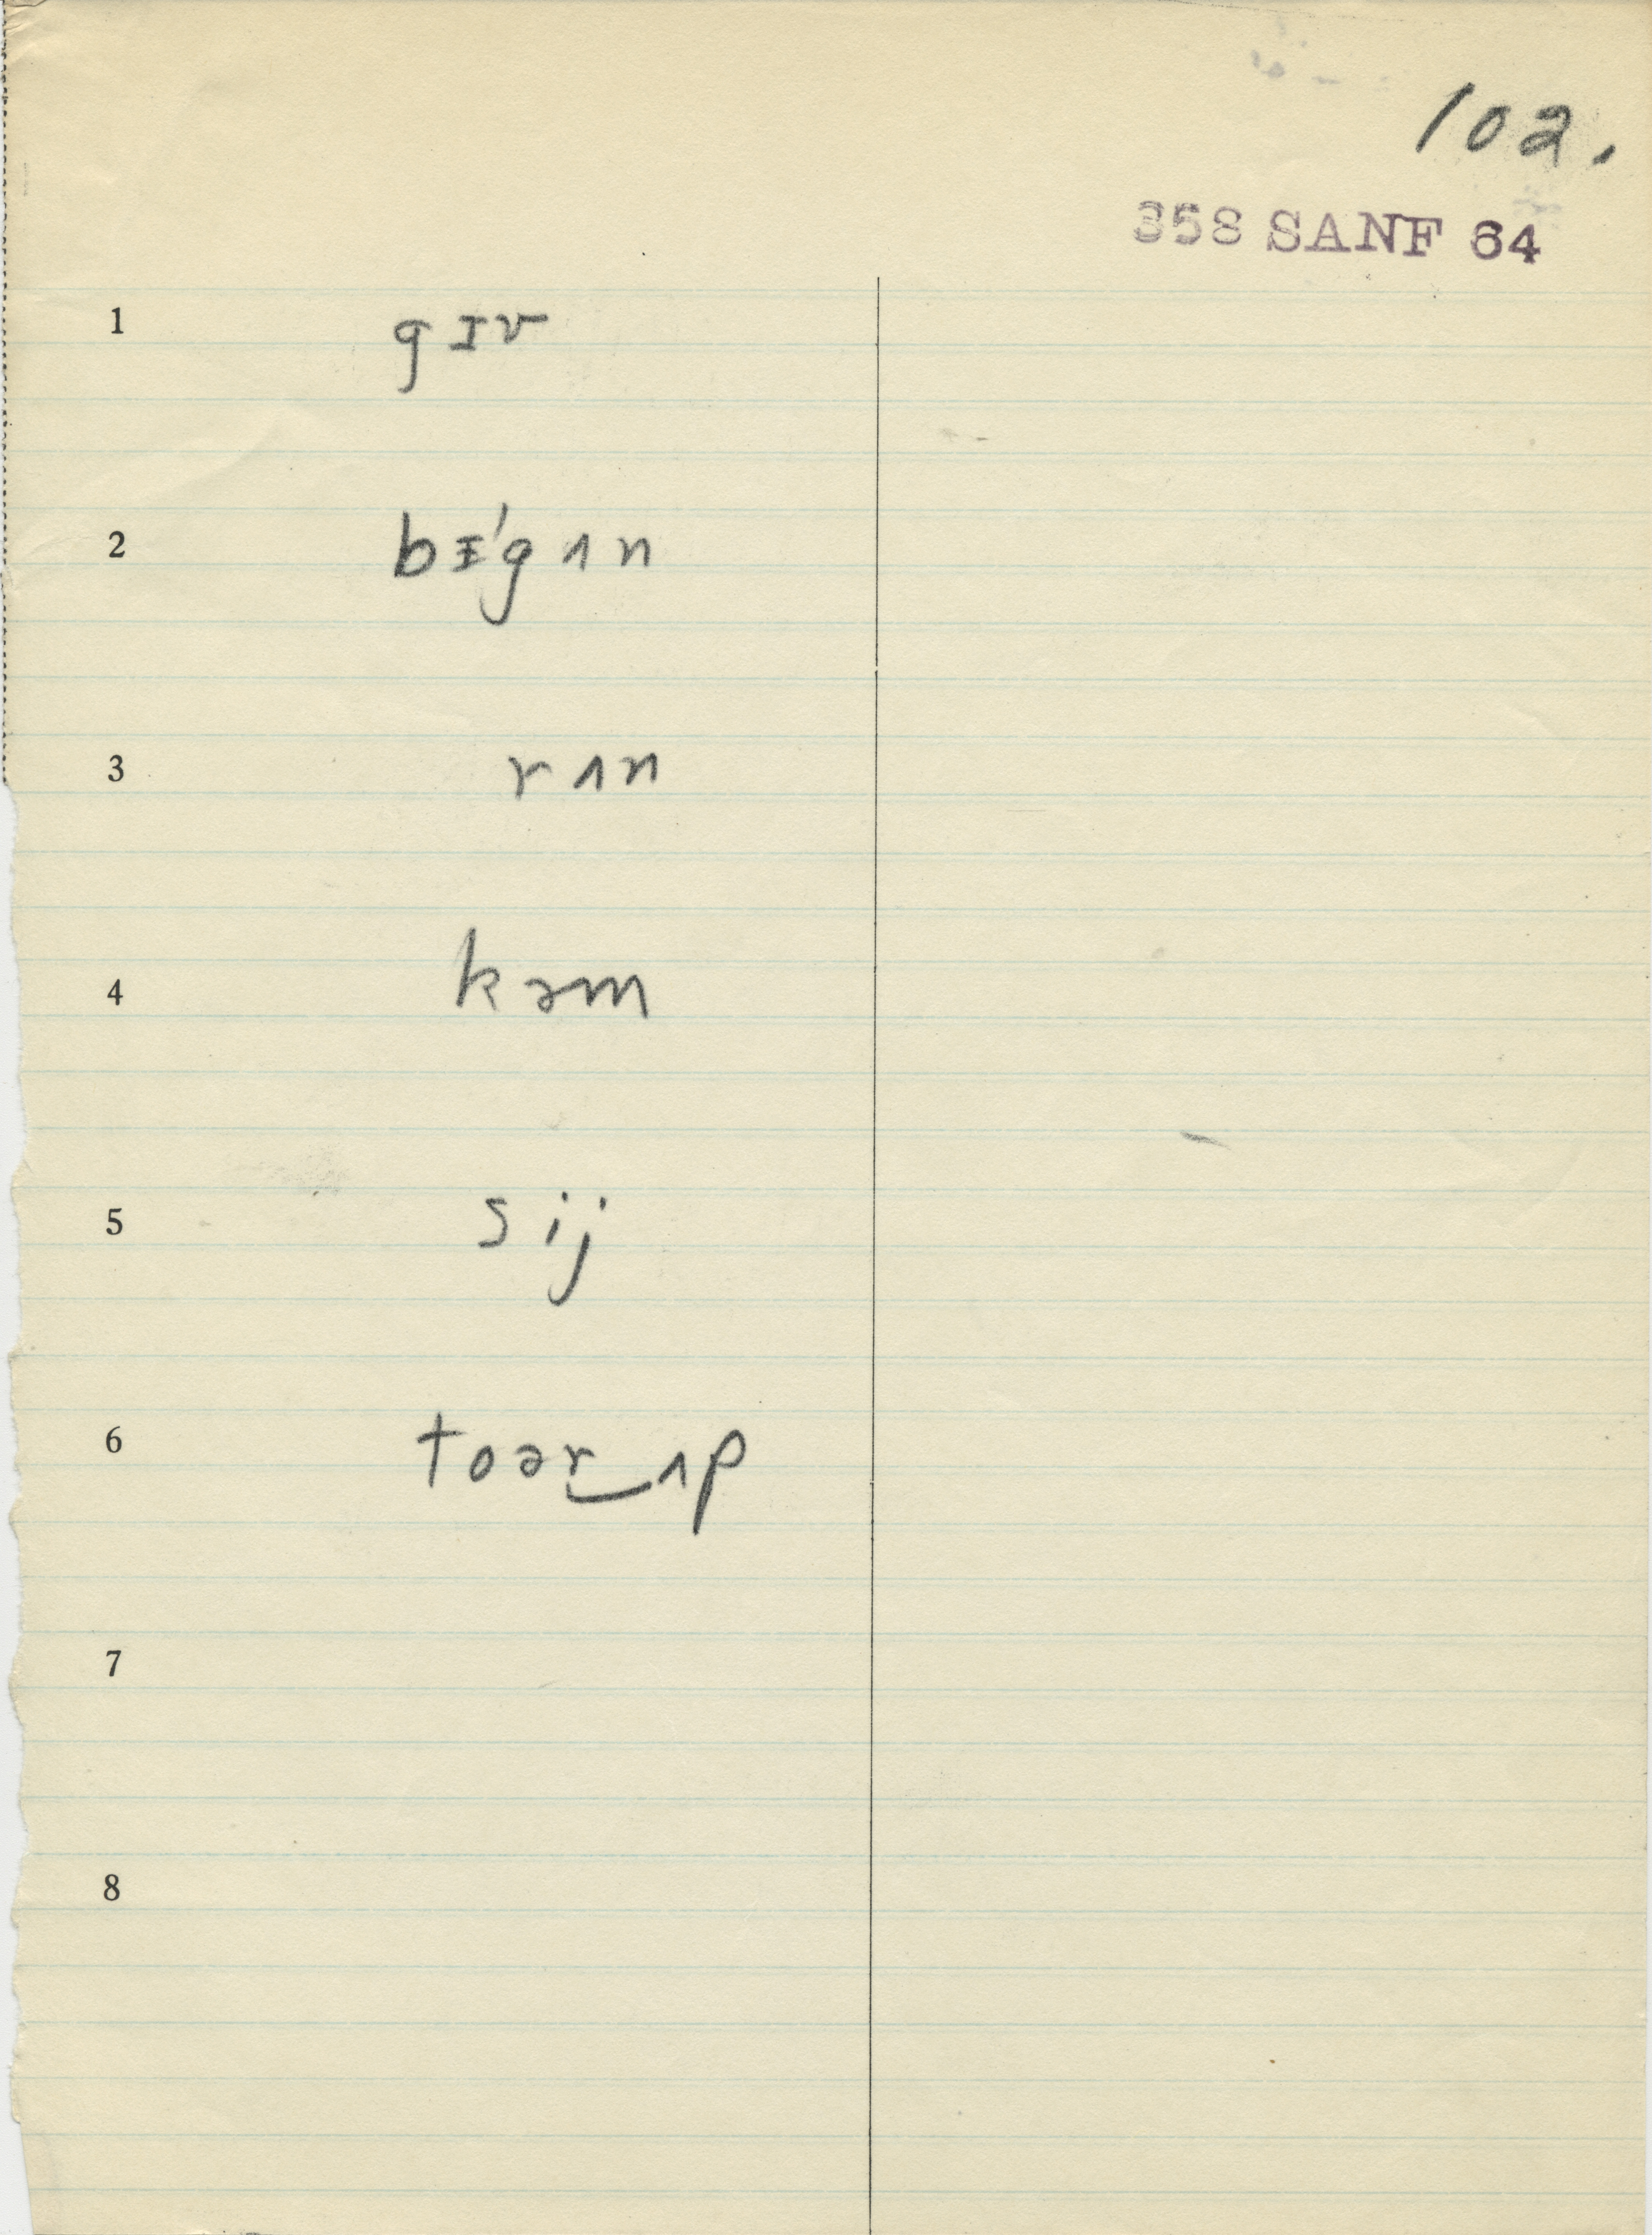 102.
358 SANF 64
1 gɪv
2 bᵻ'gʌn
3 rʌn
4 kəm
5 sij
6 toər‿ʌp
7
8